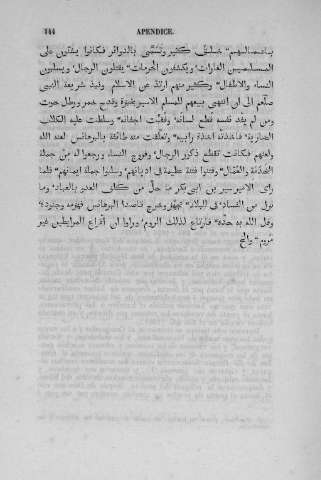 144 APENDICE.
بانضمامهم خلق كثير وتسمّى بالدوائر فكانوا يشنّون على
المسلمين الغارات ويكشفون الحرمات يقتلون الرجال ويسلبون
النساء والاطفال وكثير منهم ارتدّ عن الاسلام ونبذ شريعة النبى
صلّعم الى ان انتهى بيعهم للمسلم الاسير بخبزة وقدح خمر ورطل حوت
ومن لم يفد نفسه قطع لسانه وفقئت اجفانه وسلطت عليه الكلاب
الضارية فاخذته اخذة رابية وتعلقت منه طائفة بالبرهانس لعنه الله
ولعنهم فكانت تقطع ذكور الرجال وفروج النساء ورجعوا له من جملة
الخدّمة والعمّال وفتنوا فتنة عظيمة فى اديانهم وسلبوا جملة ايمانهم فلما
راى الامير سير بن ابى بكر ما حلّ من كلف العدو بالعباد وما
نزل من الفساد فى البلاد تجهّز وخرج قاصدا البرهانس فهزمه وجنوده
وفلّ الله به حدّه فارتاع لذلك الروم وراوا ان اقراع المرابطين غير
مروم والخ